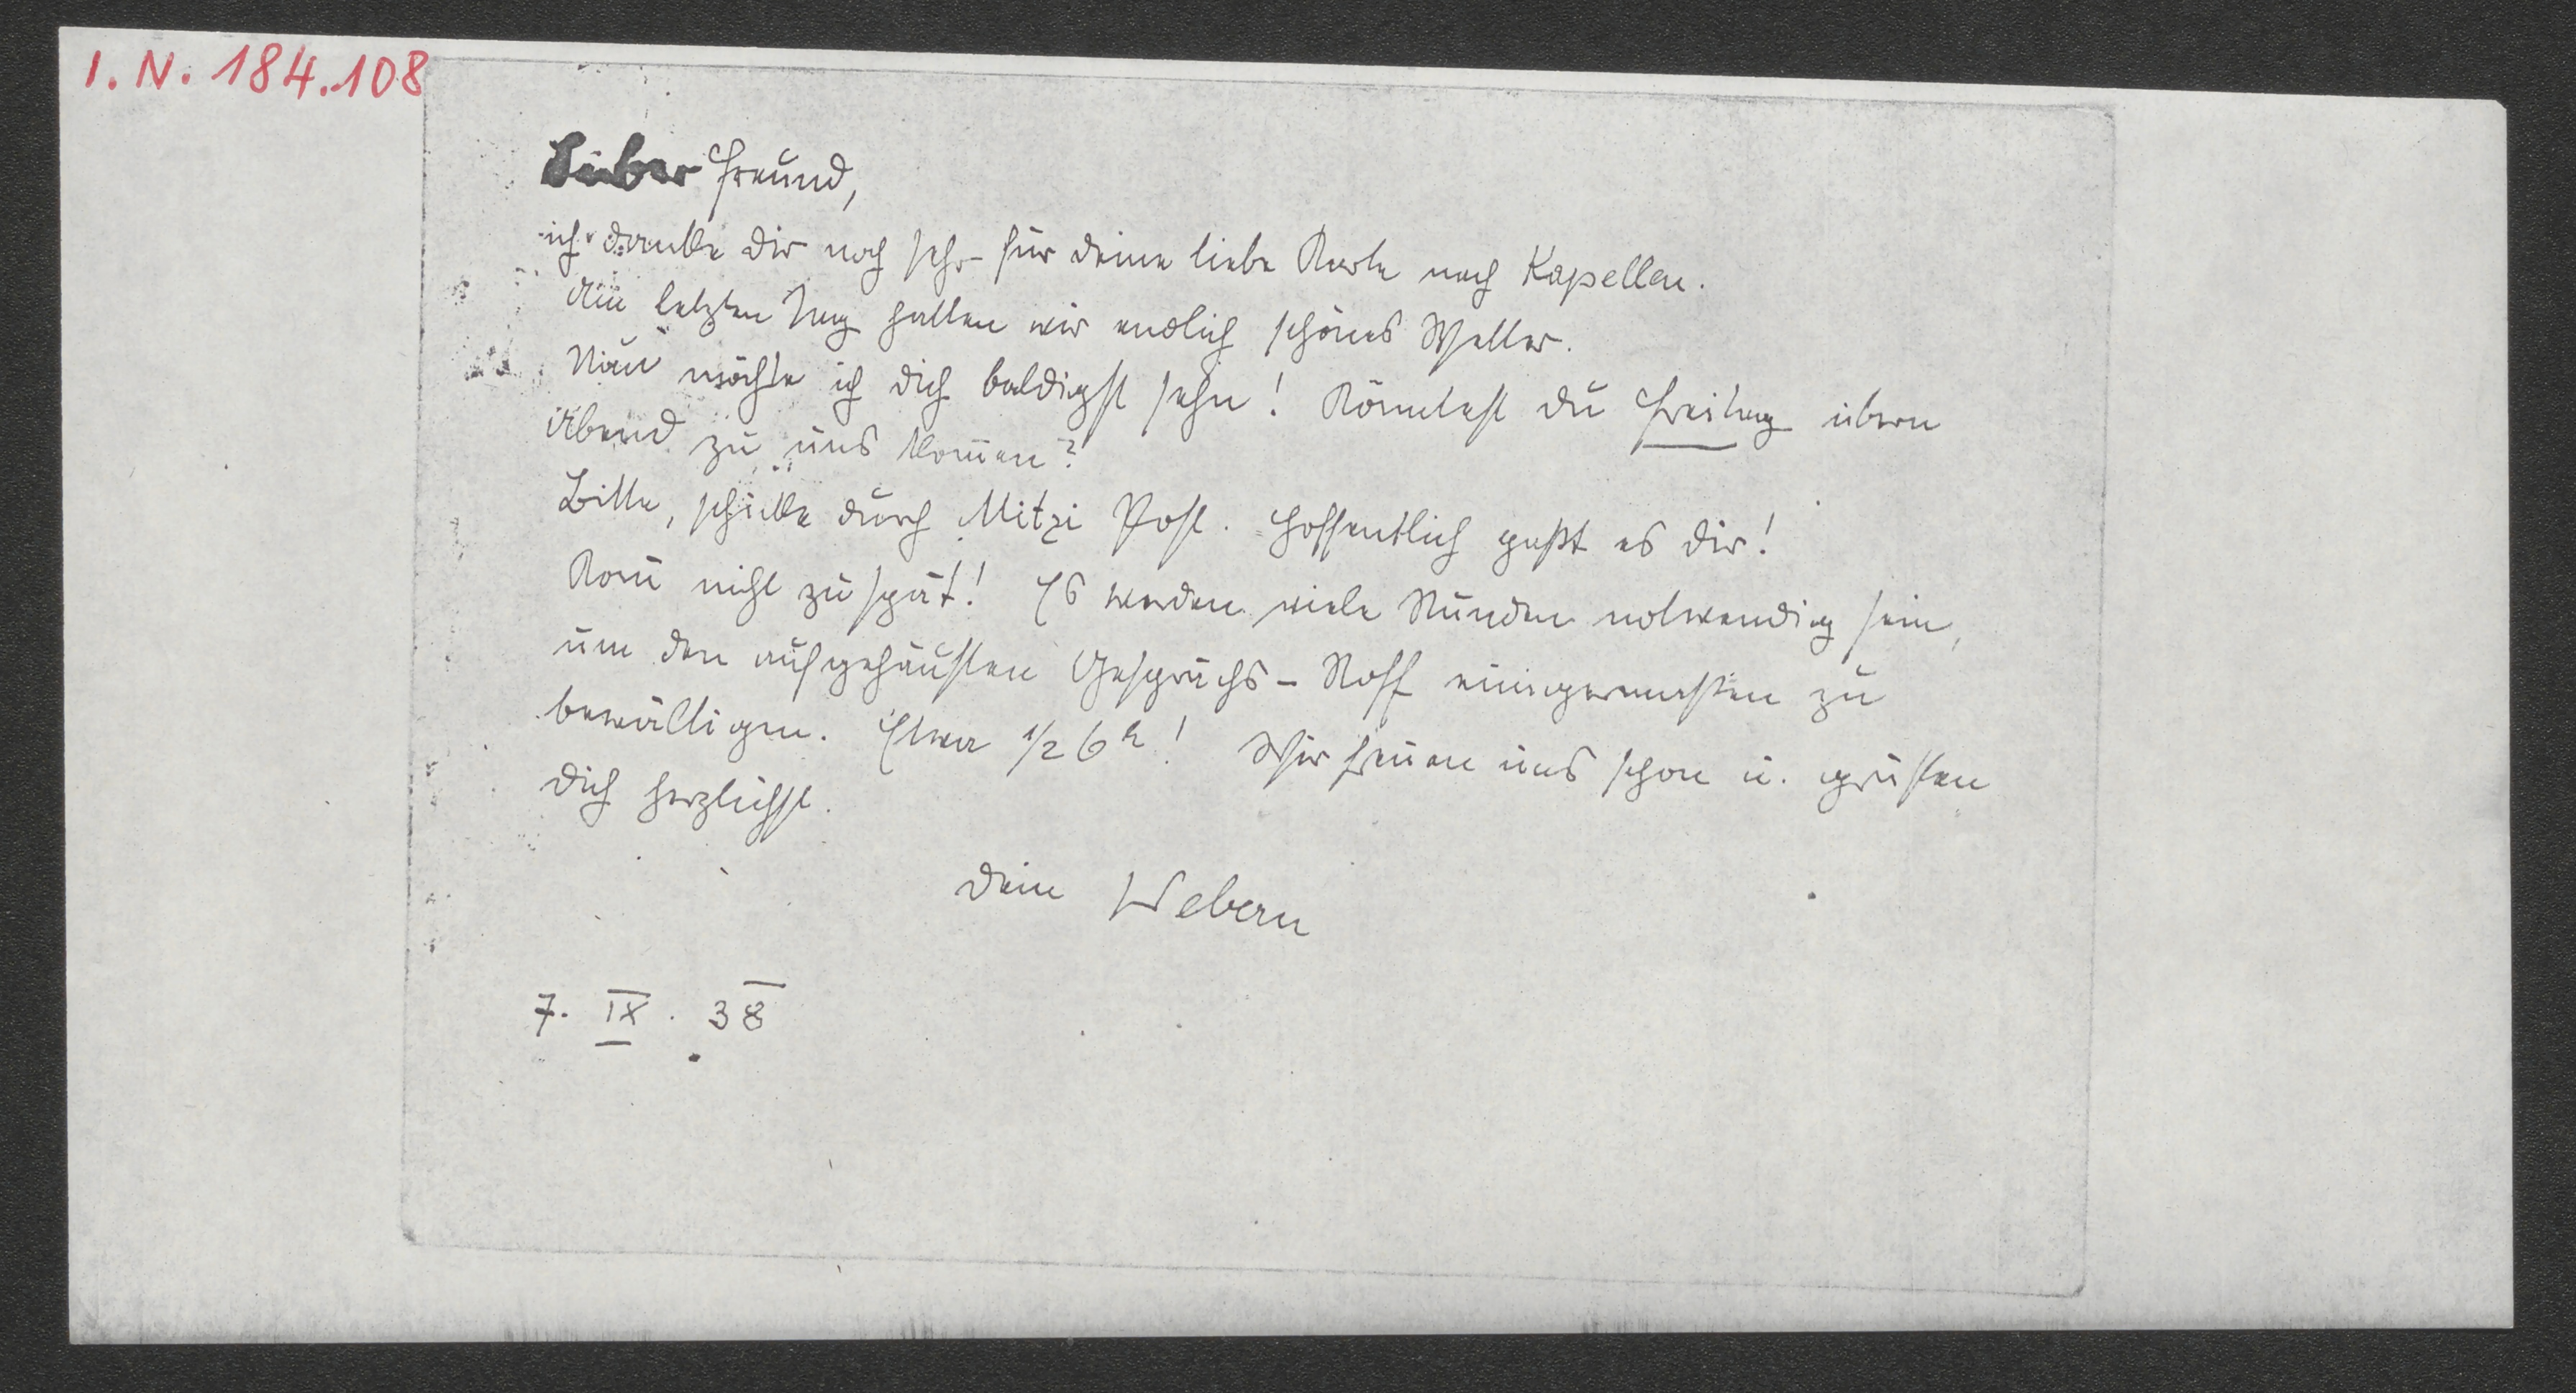 I. N. 184.108
Lieber Freund,
ich danke Dir noch sehr für Deine liebe Karte nach Kapellen.
Am letzten Tag hatten wir endlich schönes Wetter.
Nun möchte ich Dich baldigst sehn! Könntest Du Freitag übern
Abend zu uns kom̄en?
Bitte, schicke durch Mitzi Post. Hoffentlich paßt es Dir!
Kom̄ nicht zu spät! Es werden viele Stunden notwendig sein,
um den aufgehäuften Gesprächs-Stoff einigermaßen zu
bewältigen. Etwa 1/2 6h! Wir freuen uns schon u. grüßen
Dich herzlichst.
Dein Webern
7. IX. 38